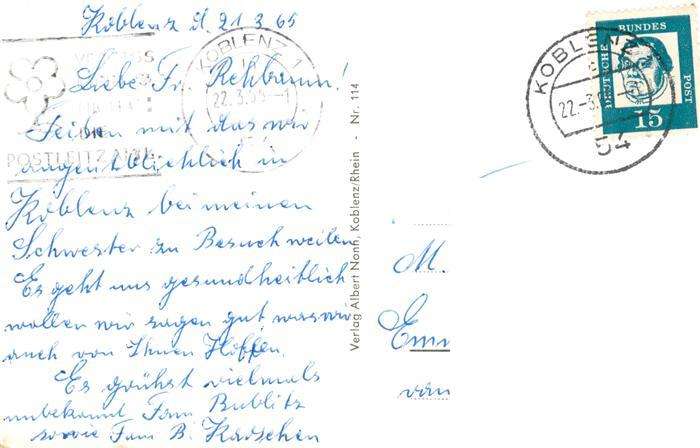 Koblenz d. 21.3.65
Liebe Fr. Rehbaum!
Teilen mit das wir
augenblichlich in
Koblenz bei meinen
Schwester zu Besuch weilen
Es geht uns gesundheitlich
wollen wir sagen gut was wir
auch von Ihnen Hoffen.
Es grühst vielmals
unbekannt Fam Bublitz
sowie Fam B. Kadschen
POSTLEITZAHL
KOBLENZ 1
22.-3.65.-1
Verlag Albert Nonn, Koblenz/Rhein - Nr. 114
KOBLENZ
22.-3.
54
DEUTSCHE BUNDESPOST
15
M.
Emm
van